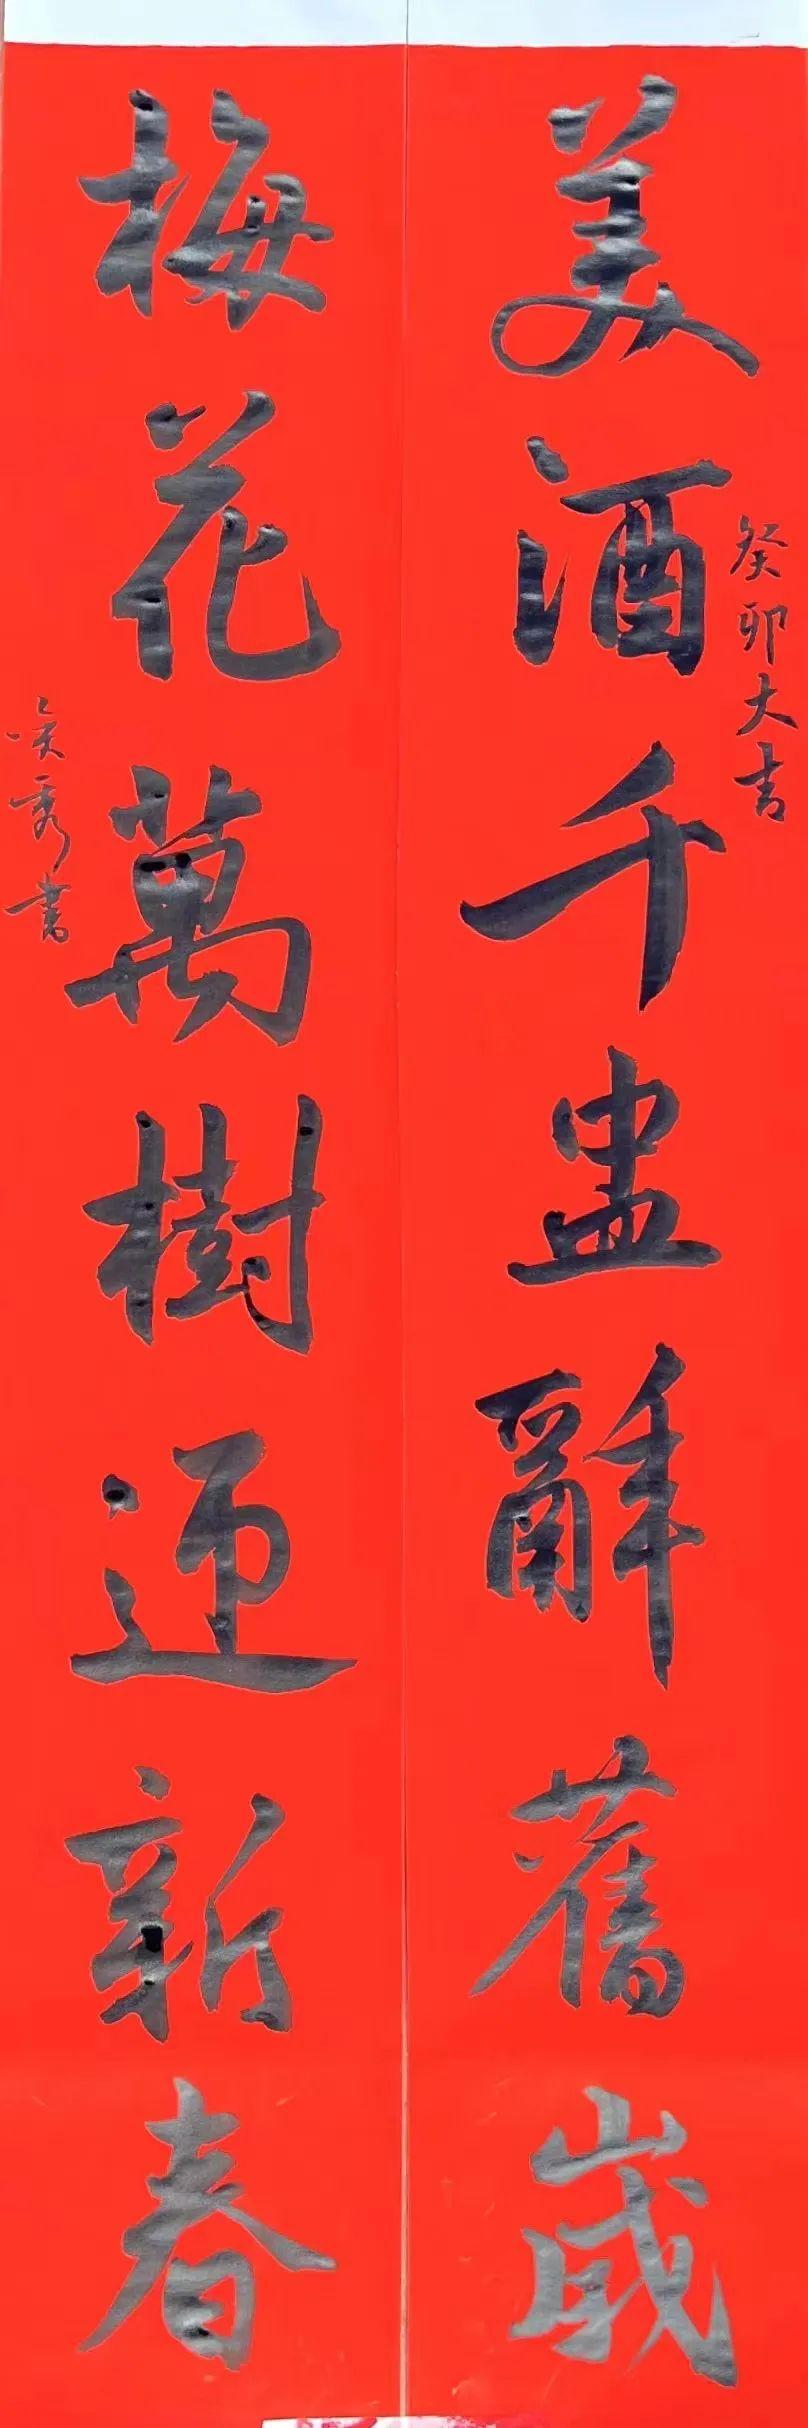 癸卯大吉
美酒千盅辭舊歲
梅花萬樹迎新春
吴秀書